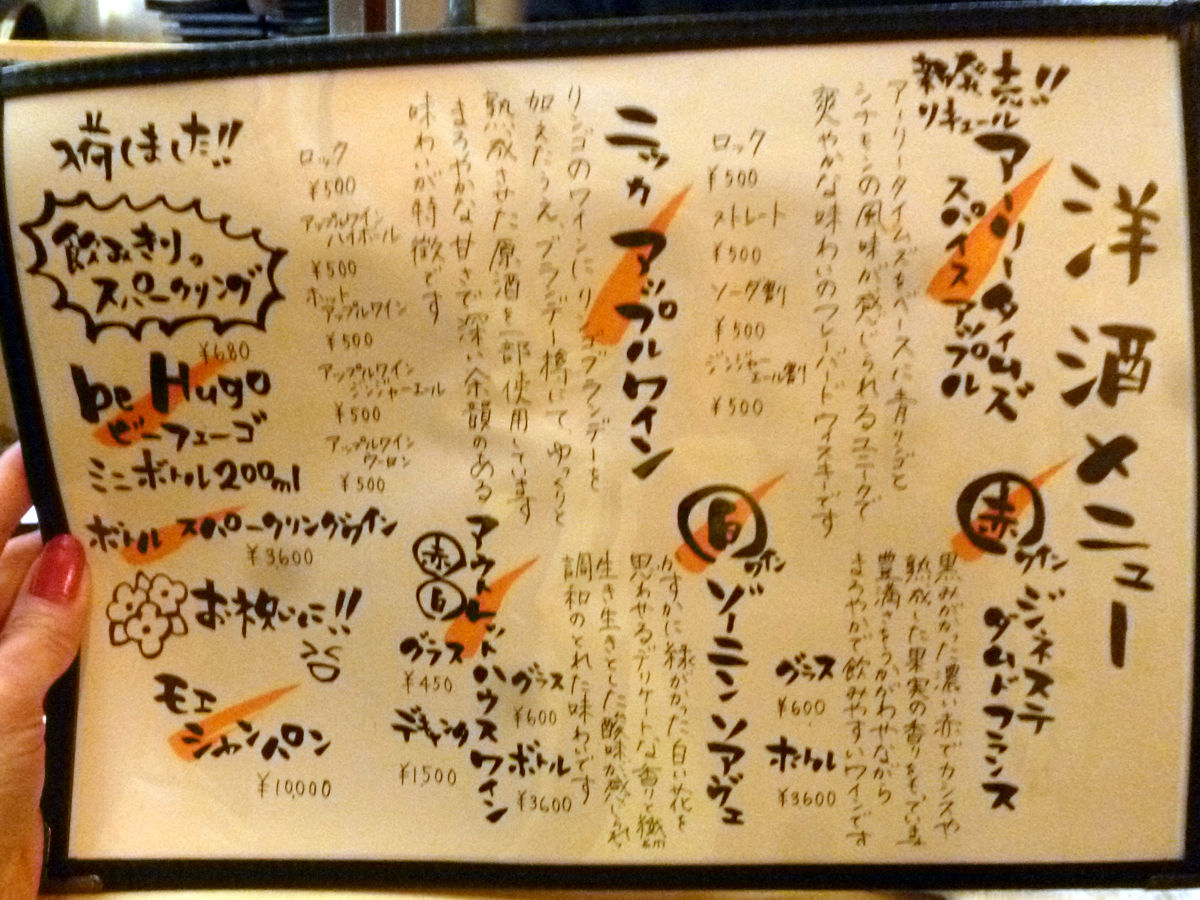 洋酒メニュー
新発売!!
リキュール
アーリータイムズ
スパイスアップル
アーリータイムズをベースに青リンゴと
シナモンの風味が感じられるユニークで
爽やかな味わいのフレーバードウィスキーです
ロック
¥500
ストレート
¥500
ソーダ割
¥500
ジンジャー
エール割
¥500
ニッカ アップルワイン
リンゴのワインにリンゴブランデーを
加えたうえ、ブランデー樽にて、ゆっくりと
熟成させた原酒を一部使用しています
まろやかな甘さで深い余韻のある
味わいが特徴です
ロック
¥500
アップルワイン
ハイボール
¥500
ホット
アップルワイン
¥500
アップルワイン
ジンジャーエール
¥500
アップルワイン
ウーロン
¥500
入荷しました!!
飲みきりっ
スパークリング
¥680
be Hugo
ビーフューゴ
ミニボトル200ml
ボトル スパークリングワイン
¥3600
お祝いに!!
モエ
シャンパン
¥10,000
赤ワイン ジネステ
ダムドフランス
黒みがかった濃い赤でカシスや
熟成した果実の香りをもっています
豊満さをうかがわせながら
まろやかで飲みやすいワインです
グラス
¥600
ボトル
¥3600
白ワイン ゾーニン ソアヴェ
かすかに緑がかった白い花を
思わせるデリケートな香りと繊細
生き生きとした酸味が感じられ
調和のとれた味わいです
グラス
¥600
ボトル
¥3600
赤 白
アウトレットハウスワイン
グラス
¥450
デキャンタ
¥1500